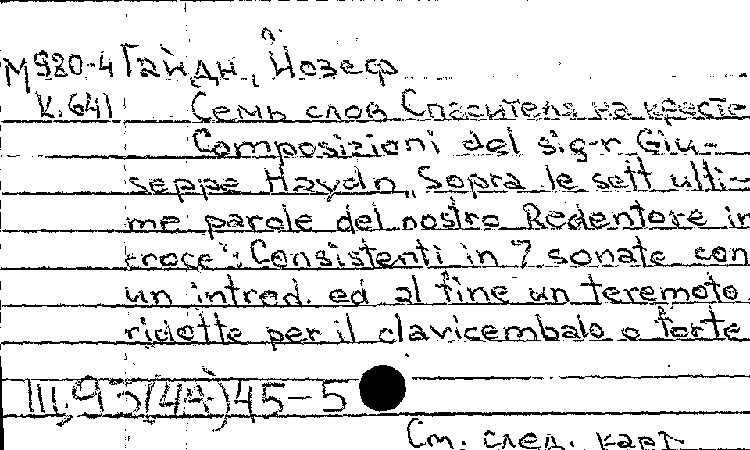 М980-4 Гайдн, Йозеф
к.641 Семь слов Спасителя на кресте
Composizioni del sig-r Giu-
seppe Haydn „Sopra le sett ulti-
me parole del nostro Redentore in
croce“: Consistenti in 7 sonate con
un introd. ed al fine un teremoto
ridotte per il clavicembalo o forte
III,93(4А)45-5
См. след. карт